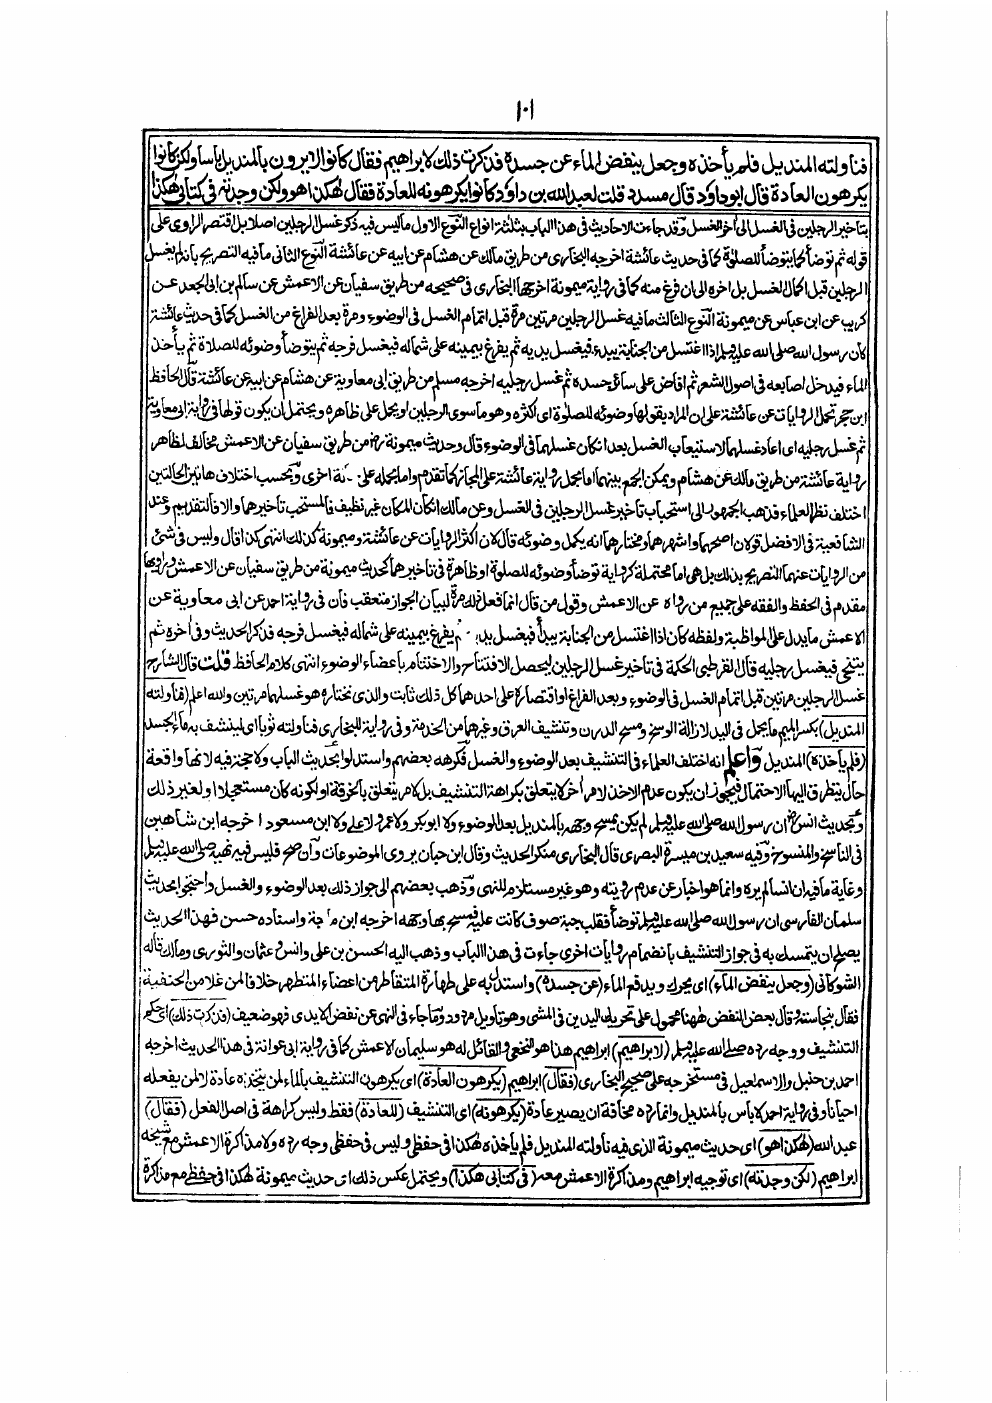 ١٠١
فناولته المنديل فلم يأخذه وجعل ينفض الماء عن جسده فذكرت ذلك لابراهيم فقال كانوا لايرون بالمنديل بأسا ولكن كانوا
يكرهون العادة قال ابوداود قال مسدد قلت لعبدالله بن داود كانوا يكرهونه للعادة فقال هكذا هو ولكن وجدته فى كتابى هكذا
بتاخير الرجلين فى الغسل الى أخر الغسل وقد جاءت الاحاديث فى هذا الباب بثلثة انواع النوع الاول ماليس فيه ذكر غسل الرجلين اصلا بل اقتصر الراوى على
قوله ثم توضأ كما يتوضأ للصلوة كما فى حديث عائشة اخرجه البخارى من طريق مالك عن هشام عن ابيه عن عائشة النوع الثانى مافيه التصريح بانه لم يغسل
الرجلين قبل اكمال الغسل بل اخره الى ان فرغ منه كما فى رواية ميمونة اخرجها البخارى فى صحيحه من طريق سفيان عن الاعمش عن سالم بن ابى الجعد عن
كريب عن ابن عباس عن ميمونة النوع الثالث مافيه غسل الرجلين مرتين مرة قبل اتمام الغسل فى الوضوء ومرة بعد الفراغ من الغسل كما فى حديث عائشة
كان رسول الله صلى الله عليه وسلم اذا اغتسل من الجنابة يبدء فيغسل يديه ثم يفرغ بيمينه على شماله فيغسل فرجه ثم يتوضأ وضوئه للصلاة ثم يأخذ
الماء فيدخل اصابعه فى اصول الشعر ثم افاض على سائر جسده ثم غسل رجليه اخرجه مسلم من طريق ابى معاوية عن هشام عن ابيه عن عائشة قال الحافظ
ابن حجر تحمل الروايات عن عائشة على ان المراد بقولها وضوئه للصلوة اى اكثره وهو ماسوى الرجلين او يحمل على ظاهره ويحتمل ان يكون قولها فى رواية ابى معاوية
ثم غسل رجليه اى اعاد غسلهما لاستيعاب الغسل بعد ان كان غسلهما فى الوضوء قال وحديث ميمونة من طريق سفيان عن الاعمش مخالف لظاهر
رواية عائشة من طريق مالك عن هشام ويمكن الجمع بينهما اما بحمل رواية عائشة على المجاز كما تقدم واما بحمله على اخرى وبحسب اختلاف هاتين الحالتين
اختلف نظر العلماء فذهب الجمهور الى استحباب تاخير غسل الرجلين فى الغسل وعن مالك ان كان المكان غير نظيف فالمستحب تاخيرهما والا فالتقديم وعند
الشافعية فى الافضل قولان اصحهما واشهرهما ومختارهما انه يكمل وضوئه قال لان اكثر الروايات عن عائشة وميمونة كذلك انتهى كذا قال وليس فى شئ
من الروايات عنهما التصريح بذلك بل هى اما محتملة كرواية توضأ وضوئه للصلوة او ظاهرة فى تاخيرهما كحديث ميمونة من طريق سفيان عن الاعمش وراويها
مقدم فى الحفظ والفقه على جميع من رواه عن الاعمش وقول من قال انما فعل ذلك مرة لبيان الجواز متعقب فان فى رواية احمد عن ابى معاوية عن
الاعمش مايدل على المواظبة ولفظه كان اذا اغتسل من الجنابة يبدأ فيغسل يديه ثم يفرغ بيمينه على شماله فيغسل فرجه فذكر الحديث وفى أخره ثم
يتنحى فيغسل رجليه قال القرطبى الحكمة فى تاخير غسل الرجلين ليحصل الافتتاح والاختتام باعضاء الوضوء انتهى كلام الحافظ قلت قال الشارح
غسل الرجلين مرتين قبل اتمام الغسل فى الوضوء وبعد الفراغ او اقتصاره على احدهما كل ذلك ثابت والذى نختاره هو غسلهما مرتين والله اعلم (فناولته
المنديل) بكسر الميم ما يحمل فى اليد لازالة الوسخ ومسح الدرن وتنشيف العرق وغيرها من الخدمة وفى رواية للبخارى فناولته ثوبا اى لينشف به ماء الجسد
(فلم يأخذه) المنديل واعلم انه اختلف العلماء فى التنشيف بعد الوضوء والغسل فكرهه بعضهم واستدلوا بحديث الباب ولا حجة فيه لانها واقعة
حال يتطرق اليها الاحتمال فيجوز ان يكون عدم الاخذ لامر أخر لا يتعلق بكراهة التنشيف بل لامر يتعلق بالخرقة او لكونه كان مستعجلا او لغير ذلك
وبحديث انس ان رسول الله صلى الله عليه وسلم لم يكن يمسح وجهه بالمنديل بعد الوضوء ولا ابوبكر ولا عمر ولا على ولا ابن مسعود اخرجه ابن شاهين
فى الناسخ والمنسوخ وفيه سعيد بن ميسرة البصرى قال البخارى منكر الحديث وقال ابن حبان يروى الموضوعات وان صح فليس فيه نهيه صلى الله عليه وسلم
وغاية مافيه ان انسا لم يره وانما هو اخبار عن عدم رويته وهو غير مستلزم للنهى وذهب بعضهم الى جواز ذلك بعد الوضوء والغسل واحتجوا بحديث
سلمان الفارسى ان رسول الله صلى الله عليه وسلم توضأ فقلب جبة صوف كانت عليه فمسح بها وجهه اخرجه ابن ماجة واسناده حسن فهذا الحديث
يصلح ان يتمسك به فى جواز التنشيف بانضمام روايات اخرى جاءت فى هذا الباب وذهب اليه الحسن بن على وانس وعثمان والثورى ومالك قاله
الشوكانى (وجعل ينفض الماء) اى يحرك ويدفع الماء (عن جسده) واستدل به على طهارة المتقاطر من اعضاء المتطهر خلافا لمن غلا من الحنفية
فقال بنجاسته قال بعض النفض ههنا محمول على تحريك اليدين فى المشى وهو تاويل مردود وما جاء فى النهى عن نفض الايدى فهو ضعيف (فذكرت ذلك) اى حكم
التنشيف ووجه رده صلى الله عليه وسلم (لابراهيم) ابراهيم هذا هو النخعى والقائل له هو سليمان الاعمش كما فى رواية ابى عوانة فى هذا الحديث اخرجه
احمد بن حنبل والاسمعيلى فى مستخرجه على صحيح البخارى (فقال) ابراهيم (يكرهون العادة) اى يكرهون التنشيف بالماء لمن يتخذه عادة لا لمن يفعله
احيانا وفى رواية احمد لاباس بالمنديل وانما رده مخافة ان يصير عادة (يكرهونه) اى التنشيف (للعادة) فقط وليس كراهة فى اصل الفعل (فقال)
عبدالله (هكذا هو) اى حديث ميمونة الذى فيه ناولته المنديل فلم يأخذه هكذا فى حفظى وليس فى حفظى وجه رده ولا مذاكرة الاعمش مع شيخه
ابراهيم (لكن وجدته) اى توجيه ابراهيم ومذاكرة الاعمش معه (فى كتابى هكذا) ويحتمل عكس ذلك اى حديث ميمونة هكذا فى حفظى مع مذاكرة